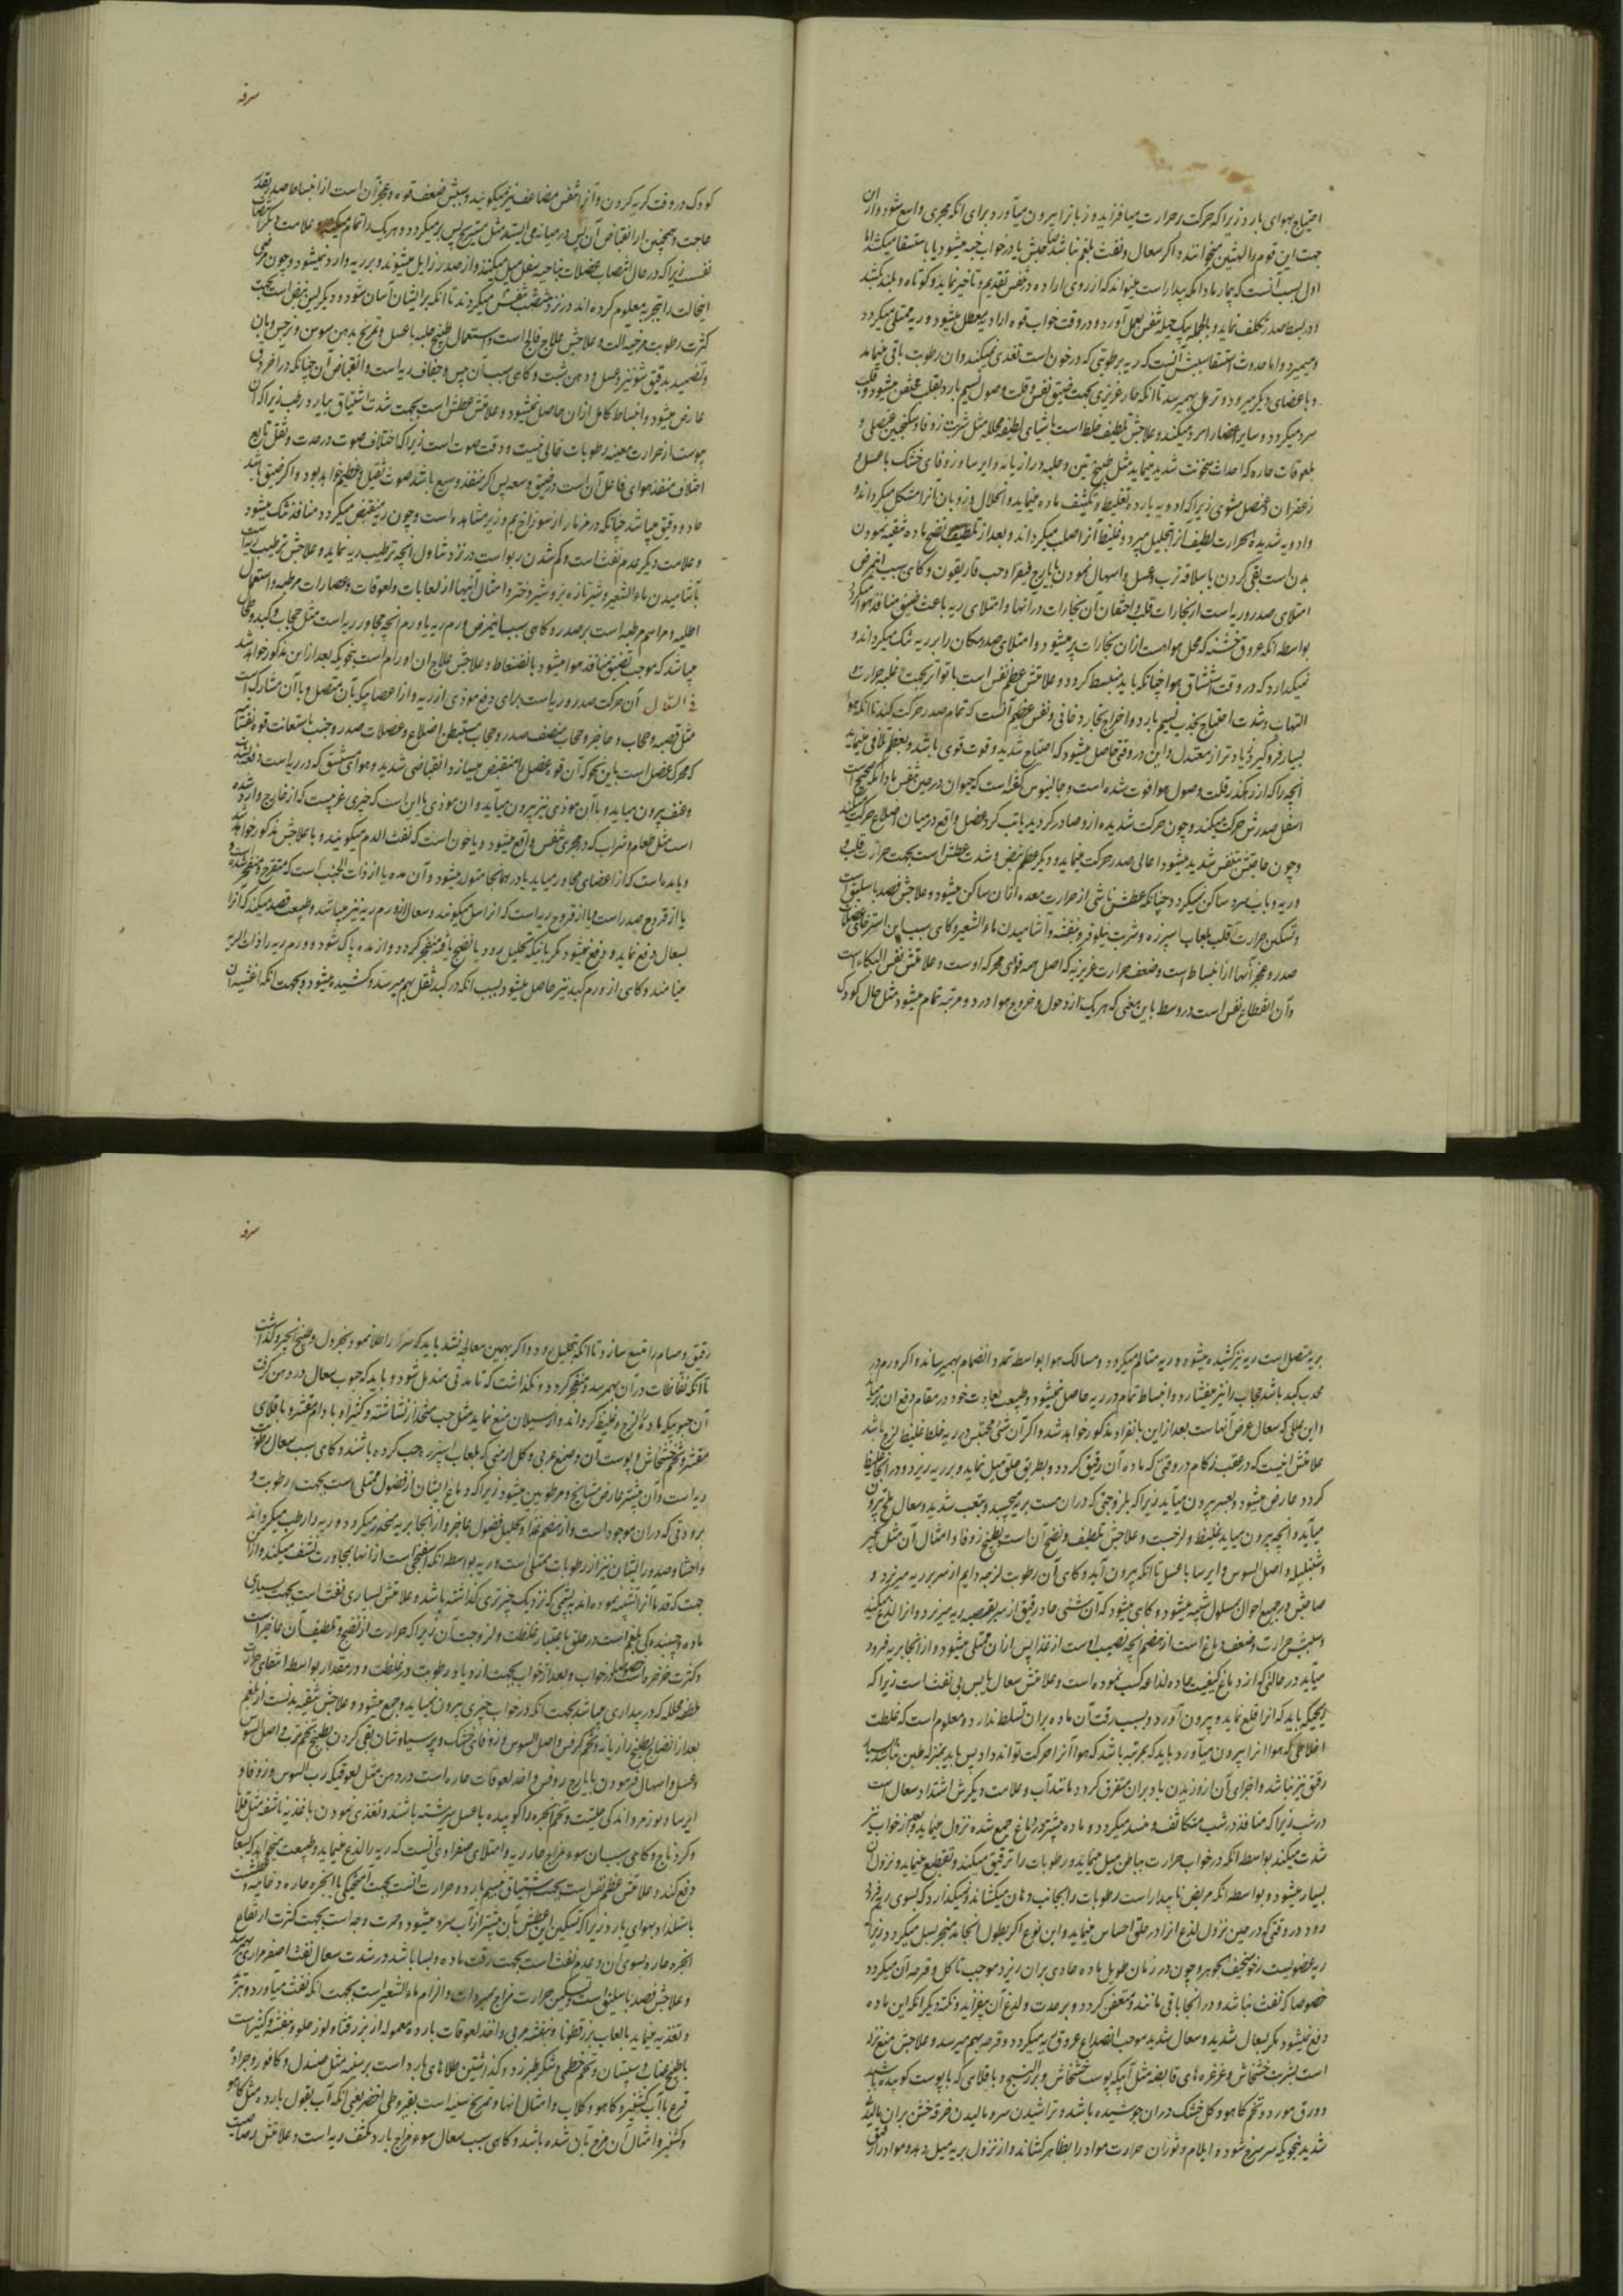 احتیاج بهوای بارد زیرا که حرکت بر حرارت میافزاید و زبانرا بیرون میآورد برای انکه مجری واسع شود و ازان
جهت این قوم را لهثین میخوانند و اگر سعال و نفث بلغم نباشد صاحبش یا در خواب خبه میشود یا باستسقا میکشد اما
اول بسبب آنست که بیمار مادامکه بیدار است میتواند که از روی اراده در نفس تقدیم و تاخیر نماید و کوتاه و بلند کشد
و در بسط صدر تکلف نماید و بالجمله بیک حیله تنفس بعمل آورد و در وقت خواب قوه ارادیه معطل میشود و ریه ممتلی میگردد
و میمیرد و اما حدوث استسقا سببش آنست که ریه برطوبتی که در خون است تغذی نمیکند و ان رطوبت باقی میماند
و باعضای دیگر میرود و ترهل بهم میرسد تا انکه حار غریزی بجهت ضیق نفس و قلت وصول نسیم بارد بقلب مختنق میشود و قلب
سرد میگردد و سایر اعضا را سرد میکند و علاجش تلطیف خلط است باشیای لطیفه محلله مثل شربت زوفا و سکنجبین عنصلی و
بلعوقات حاره که احداث سخونت شدید ننماید مثل طبیخ تین و حلبه و رازیانه و ایرسا و زوفای خشک با عسل و
زعفران و عنصل مشوی زیرا که ادویه بارده تغلیظ و تکثیف ماده مینماید و انحلال و ذوبان آنرا مشکل میگرداند و
و ادویه شدیده الحرارت لطیف آنرا تحلیل میبرد و غلیظ آنرا صلب میگرداند و بعد از تلطیف و نضج ماده تنقیه نمودن
بدن است بقی کردن با سلاقه ترب و عسل و اسهال نمودن بایارج فیقرا و حب غاریقون و گاهی سبب اینمرض
امتلای صدر و ریه است از بخارات قلب و احتقان آن بخارات در آنها و امتلای ریه باعث ضیق منافذ هوا میگردد
بواسطه انکه عروق خشنه که محل هواست ازان بخارات پر میشود و امتلای صدر مکان را بر ریه تنک میگرداند و
نمیگذارد که در وقت استنشاق هوا چنانکه باید منبسط گردد و علامتش عظم نفس است با تواتر بجهت غلبه حرارت و
التهاب و شدت احتیاج بجذب نسیم بارد و اخراج بخار دخانی و نفس عظیم آنست که تمام صدر حرکت کند تا انکه هوا
بسیار فرو گیرد زیاد تر از معتدل و این در وقتی حاصل میشود که احتیاج شدید و قوت قوی باشد و بعظم تلافی مینماید
انچه را که از رهگذر قلت وصول هوا فوت شده است و جالینوس گفته است که حیوان در حین تنفس مادامکه صحیح است
اسفل صدرش حرکت میکند و چون حرکت شدیده ازو صادر گردید یا تب کرد عضل واقع در میان اضلاع حرکت میکند
و چون حاجتش بتنفس شدید میشود اعالی صدر حرکت مینماید و دیگر عظم نبض و شدت عطش است بجهت حرارت قلب و
و ریه و باب سرد ساکن نمیگردد چنانکه عطش ناشی از حرارت معده ازان ساکن میشود و علاجش فصد باسلیق است
و تسکین حرارت قلب بلعاب اسبرزه و شربت نیلوفر و بنفشه و آشامیدن ماء الشعیر و گاهی سبب این استرخای عضلات
صدر و عجز آنها از انبساط است و ضعف حرارت غریزیه که اصل همه قوای محرکه اوست و علامتش نفس البکاء است
و آن انقطاع نفس است در وسط باین معنی که هر یک از دخول و خروج هوا در دو مرتبه تمام میشود مثل حال کودک
سرفه
کودک در وقت گریه کردن و آنرا تنفس مضاعف نیز میگویند و سببش ضعف قوه و عجز آن است از انبساط صدر بقدر
حاجت و همچنین از انقباض آن پس در میانه می ایستد مثل مستریح پس بر میگردد و هر یک را تمام میکند و علامت دیگر انتصاب
نفس زیرا که در حال انتصاب عضلات بناحیه سفل میل میکنند و از صدر زایل میشوند و بر ریه وارد نمیشود و چون مرضی
اینحالت را بتجربه معلوم کرده اند در نزد تنفس منتصب میگردند تا انکه بر ایشان آسان شود و دیگر لین نبض است بجهت
کثرت رطوبت مرخیه الت و علاجش علاج فالج است و استعمال طبیخ حلبه با عسل و تمریخ بدهن سوسن و نرجس و بان
و تضمید بدقیق شونیز و عسل و دهن شبت و گاهی سبب آن یبس و جفاف ریه است و انقباض آن چنانکه در اخر دق
عارض میشود و انبساط کامل ازان حاصل نمیشود و علامتش عطش است بجهت شدت اشتیاق ببارد رطب زیرا که آن
یبوست از حرارت معینه رطوبات خالی نیست و دقت صوت است زیرا که اختلاف صوت در حدت و ثقل تابع
اختلاف منفذ هوای فاعل آن است در ضیق و سعه پس اگر منفذ وسیع باشد صوت ثقیل و عظیم خواهد بود و اگر ضیق باشد
حاد و دقیق میباشد چنانکه در مزمار از سوراخ بم و زیر مشاهده است و چون ریه منقبض میگردد منافذ تنک میشود
و علامت دیگر عدم نفث است و کم شدن ربو است در نزد تناول انچه ترطیب ریه نماید و علاجش ترطیب ریه است
بآشامیدن ماء الشعیر و شیر تازه بز و شیر دختر و امثال اینها از لعابات و لعوقات و عصارات مرطبه و استعمال
اطلیه و مراهم مرطبه است بر صدر و گاهی سبب اینمرض ورم ریه یا ورم انچه مجاور ریه است مثل حجاب و کبد و طحال
میباشد که موجب تضییق منافذ هوا میشود بانضغاط و علاجش علاج ان اورام است بنحویکه بعد از این مذکور خواهد شد
فی السعال آن حرکت صدر و ریه است برای دفع موذی از ریه و از اعضائیکه بآن متصل و با آن مشارک است
مثل قصبه و حجاب و حاجز و حجاب منصف صدر و حجاب مستبطن اضلاع و عضلات صدر و جنب باستعانت قوه نفسانیه
که محرک عضل است باین نحو که آن قوه عضل را منقبض میسازد انقباضی شدید و هوای مستنشق که در ریه است دفعة بشدت
و عنف بیرون میاید و با آن موذی نیز بیرون میآید و ان موذی یا این است که چیزی غریبست که از خارج وارد شده
است مثل طعام و شراب که در مجری تنفس واقع میشود و یا خون است که نفث الدم میگویند و با علاجش مذکور خواهد شد
و یا مده است که از اعضای مجاور میاید یا در همانجا متولد میشود و آن مده یا از ذات الجنب است که متقرح و منفجر شده است
یا از قروح صدر است یا از قروح ریه است که انرا سل میگویند و سعال از ورم ریه نیز میباشد و طبیعت قصد میکند که آنرا
بسعال دفع نماید و دفع نمیشود مگر بانکه تحلیل رود یا بنضج یافته منفجر گردد و از مده پاک شود و ورم ریه را ذات الریه
مینامند و گاهی از ورم کبد نیز حاصل میشود بسبب انکه در کبد ثقل بهم میرسد و کشیده میشود و بجهت انکه اغشیه آن
بریه متصل است ریه نیز کشیده میشود و ریه متالم میگردد و مسالک هوا بواسطه تمدد انضمام بهم میرساند و اگر ورم در
محدب کبد باشد حجاب را نیز میفشارد و انبساط تمام در ریه حاصل نمیشود و طبیعت بعادت خود در مقام دفع ان برمیاید
و این عللی که سعال عرض آنهاست بعد از این بانفراد مذکور خواهد شد و اگر آن شئ محتبس در ریه خلط غلیظ لزج باشد
علامتش اینست که در عقب زکام در وقتی که ماده آن رقیق گردد و بطریق حلق میل نماید و بر ریه ریزد و در آنجا غلیظ
گردد عارض میشود و بعسر بیرون میآید زیرا که بلزوجتی که دران هست بریه میچسبد و بتعب شدید و سعال ملح بیرون
میآید و انچه بیرون میاید غلیظ و لزجست و علاجش تلطیف و نضج آن است بطبیخ زوفا و امثال آن مثل انجیر
و شنبلیله و اصل السوس و ایرسا با عسل تا انکه بیرون آید و گاهی آن رطوبت لزجه دایم از سر بر ریه میریزد و
صاحبش در جمیع احوال بمسلول شبیه میشود و گاهی میشود که آن شئی حاد رقیق از سر بقصبه ریه میریزد و از اللذع میکند
و سببش حرارت و ضعف دماغ است از هضم انچه نصیب اوست از غذا پس ازان ممتلی میشود و از انجا بریه فرود
میآید در حالتی که از دماغ کیفیت حاده لذاعه کسب نموده است و علامتش سعال یابس بی نفث است زیرا که
ریحیکه باید که انرا قلع نماید و بیرون آورد بسبب رقت آن ماده بران تسلط ندارد و معلوم است که غلظت
اخلاطی که هوا انرا بیرون میآورد باید که بمرتبه باشد که هوا آنرا حرکت تواند داد پس باید بنهجی که
رقیق نیز نباشد و اجزای آن از وزیدن باد بران متفرق گردد مانند آب و علامت دیگرش اشتداد سعال است
در شب زیرا که منافذ در شب متکاثف و منسد میگردد و ماده بیشتر در دماغ جمع شده نزول مینماید و بعد از خواب نیز
شدت میکند بواسطه انکه در خواب حرارت بباطن میل مینماید و رطوبات را ترقیق میکند و تقطیع مینماید و نزول آن
بسیار میشود و بواسطه انکه مریض تا بیدار است رطوبات را بجانب دهان میکشاند و نمیگذارد که بسوی ریه فرو
رود و در وقتی که در حین نزول لذع انرا در حلق احساس مینماید و این نوع اگر بطول انجامد منجر بسل میگردد زیرا که
ریه عضویست رخو سخیف الجوهر و چون در زمان طویل ماده حادی بران ریزد موجب تاکل و قرحه آن میگردد
خصوصا که نفث نباشد و در انجا باقی مانند و متعفن گردد و بر حدت و لذع آن بیفزاید و نکته دیگر انکه این ماده
دفع نمیشود مگر بسعال شدید و سعال شدید موجب انصداع عروق ریه میگردد و قرحه بهم میرسد و علاجش منع نزله
است بشربت خشخاش و غرغره های قابضه مثل آبیکه پوست خشخاش و بزر البنج و باقلای که با پوست کوبیده باشند
و ورق مورد و تخم کاهو و گل خشک دران جوشیده باشد و تراشیدن سر و مالیدن خرقه خشن بران مالیدن
شدید بنحویکه سر سرخ شود و ایلام و ثوران حرارت مواد را بظاهر کشاند و از نزول بریه میل دهد و مواد را رقیق
سرفه
رقیق و مسام را متسع سازد تا انکه بتحلیل رود و اگر بهمین معالجه نشد باید که سر را طلا نمود بخردل و طبیخ انجیر و گذاشت
تا انکه نفاطات در آن بهم رسد و منفجر گردد و نگذاشت که تا مدتی مندمل شود و باید که حبوب سعال در دهن گرفت
آن حبوبیکه ماده را لزج و غلیظ گرداند و از سیلان منع نماید مثل حب متخذ از نشاشته و کثیرا و بادام مقشر و باقلای
مقشر و تخم خشخاش و پوست آن و صمغ عربی و گل ارمنی که بلعاب اسبزره حب کرده باشند و گاهی سبب سعال رطوبت
ریه است و آن بیشتر عارض مشایخ و مرطوبین میشود زیرا که دماغ ایشان از فضول ممتلی است بجهت رطوبت و
برودتی که دران موجود است و از هضم غذا و تحلیل فضول عاجز و از انجا بریه منحدر میگردد و ریه را رطب میگرداند
و احشا و صدور ایشان نیز از رطوبات ممتلی است و ریه بواسطه انکه اسفنجی است از انها بمجاورت نشف میکند و از آن
جهت که قدما آنرا تشبیه نموده اند به پشمی که نزدیک چیز تری گذاشته باشد و علامتش بسیاری نفث است بجهت بسیاری
ماده و چسبندگی بلغم است در حلق باعتبار غلظت و لزوجت آن زیرا که حرارت از نضج و تلطیف آن عاجز است
و کثرت خرخره است خصوصا در خواب و بعد از خواب بجهت ازدیاد رطوبت در غلظت و در مقدار بواسطه انتفای حرکت
ملطفه محلله که در بیداری میباشد بجهت انکه در خواب چیزی بیرون نمیآید و جمع میشود و علاجش تنقیه بدنست از بلغم
بعد از انضاج بطبیخ رازیانه و تخم کرفس و اصل السوس و زوفای خشک و پرسیاوشان بقی کردن بطبیخ تخم ترب و اصل السوس
و عسل و اسهال فرمودن بایارج روفس و اخذ لعوقات حاره است در دهن مثل لعوقیکه رب السوس و زوفا و
ایرسا و لوز مر و اندکی حلتیت و تخم انجره را کوبیده با عسل سرشته باشند و تغذی نمودن باغذیه ناشفه مثل قلایا
و کردناج و گاهی سبب ان سوء مزاج حار ریه و امتلای صفراویست که ریه را لذع مینماید و طبیعت میخواهد که بسعال
دفع کند و علامتش عظم نفس است بجهت استنشاق نسیم بارد و حرارت آنست بجهت آمیختگی با بخره حاره و عطش است
باستلذاذ بهوای بارد زیرا که تسکین این عطش بان بیشتر از آب سرد میشود و حمرت وجه است بجهت کثرت ارتفاع
ابخره حاره بسوی آن و عدم نفث است بجهت رقت ماده و بسا باشد در شدت سعال نفث اصفر مراری بهم رسد
و علاجش فصد باسلیق است و تسکین حرارت مزاج بمبردات و الزام ماء الشعیر است بجهت انکه نفث میآورد و تبرید
و تغذیه مینماید بالعاب بزرقطونا و بنفشه مربی و اخذ لعوقات بارده معموله از بزر قثا و لوز حلو و بنفشه و کثیراست
با طبیخ عناب و سپستان و تخم خطمی و شکر طبرزد و گذاشتن طلاهای بارد است بر سینه مثل صندل و کافور و جراده
قرع با آب کشنیز و کاهو و گلاب و امثال انها و تمریخ سینه است بقیروطی اخضر یعنی انکه آب بقول بارده مثل کاهو
و کشنیز و امثال آن مزج بان شده باشد و گاهی سبب سعال سوء مزاج بارد مکثف ریه است و علامتش رصاصیت